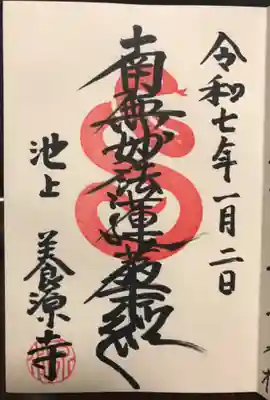 令和七年一月二日
南無妙法蓮華経
池上
養源寺